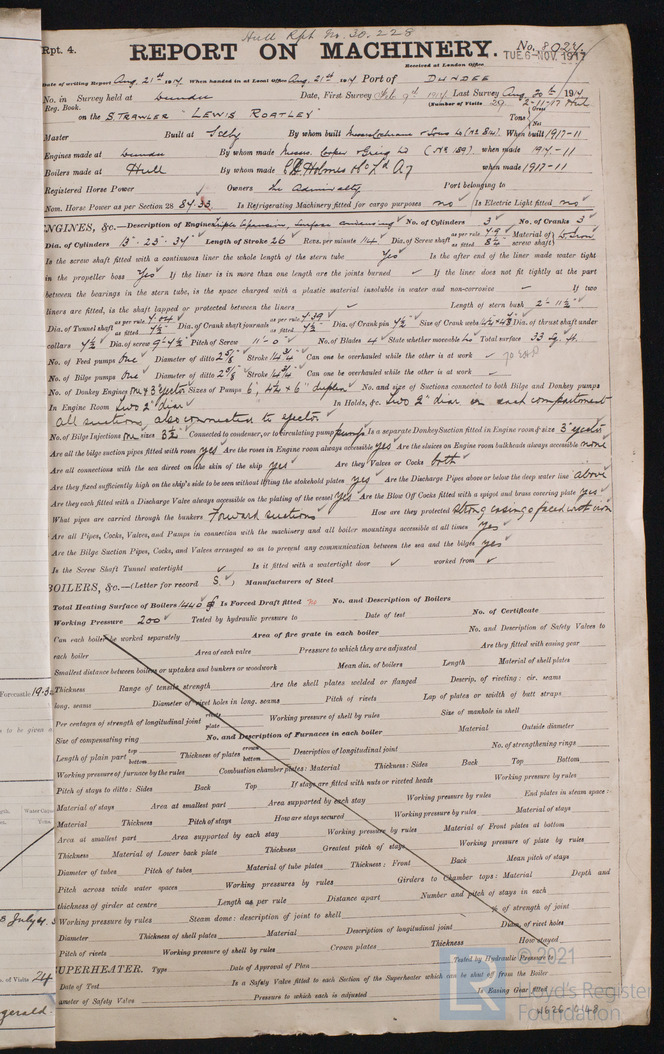 Hull Rpt No. 30,228
Rpt. 4.
REPORT ON MACHINERY.
No. 8024
TUE. 6-NOV. 1917
Received at London Office
Date of writing Report Aug. 21st 1917 When handed in at Local Office Aug. 21st 1917 Port of DUNDEE
No. in Survey held at Dundee Date, First Survey Feb 9th 1917 Last Survey Aug. 20th 1917
Reg. Book. (Number of Visits 29 2-11-17 Hull
on the S. TRAWLER "LEWIS ROATLEY" Tons { Gross Net
Master Built at Selby By whom built Messrs Cochrane & Sons Ld When built 1917-11
Engines made at Dundee By whom made Messrs. Cooper & Greig Ld (No 189) when made 1917-11
Boilers made at Hull By whom made when made 1917-11
Registered Horse Power Owners The Admiralty Port belonging to
Nom. Horse Power as per Section 28 84.33 Is Refrigerating Machinery fitted for cargo purposes no Is Electric Light fitted no
ENGINES, &c.—Description of Engines Triple Expansion, Surface condensing No. of Cylinders 3 No. of Cranks 3
Dia. of Cylinders 13" - 23" - 37" Length of Stroke 26 Revs. per minute 114 Dia. of Screw shaft as per rule 7.9 as fitted 8 1/2" Material of screw shaft W Iron
Is the screw shaft fitted with a continuous liner the whole length of the stern tube Yes Is the after end of the liner made water tight
in the propeller boss Yes If the liner is in more than one length are the joints burned If the liner does not fit tightly at the part
between the bearings in the stern tube, is the space charged with a plastic material insoluble in water and non-corrosive If two
liners are fitted, is the shaft lapped or protected between the liners Length of stern bush 2'-11 1/2"
Dia. of Tunnel shaft as per rule as fitted 7 1/2 Dia. of Crank shaft journals as per rule 7.39 as fitted 7 1/2 Dia. of Crank pin 7 1/2 Size of Crank webs Dia. of thrust shaft under
collars 7 1/2 Dia. of screw 9'-7 1/2" Pitch of Screw 11'-0" No. of Blades 4 State whether moveable no Total surface 33 sq. ft.
No. of Feed pumps One Diameter of ditto 2 5/8 Stroke 14 3/4 Can one be overhauled while the other is at work
No. of Bilge pumps One Diameter of ditto 2 5/8 Stroke 14 3/4 Can one be overhauled while the other is at work
No. of Donkey Engines One & 3" Ejector Sizes of Pumps 6", 4 1/2 + 6" duplex No. and size of Suctions connected to both Bilge and Donkey pumps
In Engine Room two 2" diar In Holds, &c. two 2" diar in each compartment
all suctions also connected to ejector.
No. of Bilge Injections One sizes 3 1/2 Connected to condenser, or to circulating pump pump Is a separate Donkey Suction fitted in Engine room & size 3" ejector
Are all the bilge suction pipes fitted with roses Yes Are the roses in Engine room always accessible Yes Are the sluices on Engine room bulkheads always accessible none
Are all connections with the sea direct on the skin of the ship Yes Are they Valves or Cocks both
Are they fixed sufficiently high on the ship's side to be seen without lifting the stokehold plates Yes Are the Discharge Pipes above or below the deep water line above
Are they each fitted with a Discharge Valve always accessible on the plating of the vessel Yes Are the Blow Off Cocks fitted with a spigot and brass covering plate Yes
What pipes are carried through the bunkers Forward suctions How are they protected strong casing faced with iron
Are all Pipes, Cocks, Valves, and Pumps in connection with the machinery and all boiler mountings accessible at all times Yes
Are the Bilge Suction Pipes, Cocks, and Valves arranged so as to prevent any communication between the sea and the bilges Yes
Is the Screw Shaft Tunnel watertight Is it fitted with a watertight door worked from
BOILERS, &c.—(Letter for record S.) Manufacturers of Steel
Total Heating Surface of Boilers 1440 Is Forced Draft fitted No No. and Description of Boilers
Working Pressure 200 Tested by hydraulic pressure to Date of test No. of Certificate
Can each boiler be worked separately Area of fire grate in each boiler No. and Description of Safety Valves to
each boiler Area of each valve Pressure to which they are adjusted Are they fitted with easing gear
Smallest distance between boilers or uptakes and bunkers or woodwork Mean dia. of boilers Length Material of shell plates
Thickness Range of tensile strength Are the shell plates welded or flanged Descrip. of riveting: cir. seams
long. seams Diameter of rivet holes in long. seams Pitch of rivets Lap of plates or width of butt straps
Per centages of strength of longitudinal joint rivets plate Working pressure of shell by rules Size of manhole in shell
Size of compensating ring No. and Description of Furnaces in each boiler Material Outside diameter
Length of plain part top bottom Thickness of plates crown bottom Description of longitudinal joint No. of strengthening rings
Working pressure of furnace by the rules Combustion chamber plates: Material Thickness: Sides Back Top Bottom
Pitch of stays to ditto: Sides Back Top If stays are fitted with nuts or riveted heads Working pressure by rules
Material of stays Area at smallest part Area supported by each stay Working pressure by rules End plates in steam space:
Material Thickness Pitch of stays How are stays secured Working pressure by rules Material of stays
Area at smallest part Area supported by each stay Working pressure by rules Material of Front plates at bottom
Thickness Material of Lower back plate Thickness Greatest pitch of stays Working pressure of plate by rules
Diameter of tubes Pitch of tubes Material of tube plates Thickness: Front Back Mean pitch of stays
Pitch across wide water spaces Working pressures by rules Girders to Chamber tops: Material Depth and
thickness of girder at centre Length as per rule Distance apart Number and pitch of stays in each
Working pressure by rules Steam dome: description of joint to shell % of strength of joint
Diameter Thickness of shell plates Material Description of longitudinal joint Diam. of rivet holes
Pitch of rivets Working pressure of shell by rules Crown plates Thickness How stayed
SUPERHEATER. Type Date of Approval of Plan Tested by Hydraulic Pressure to
Date of Test Is a Safety Valve fitted to each Section of the Superheater which can be shut off from the Boiler
Diameter of Safety Valve Pressure to which each is adjusted Is Easing Gear fitted
© 2021
Lloyd's Register
Foundation